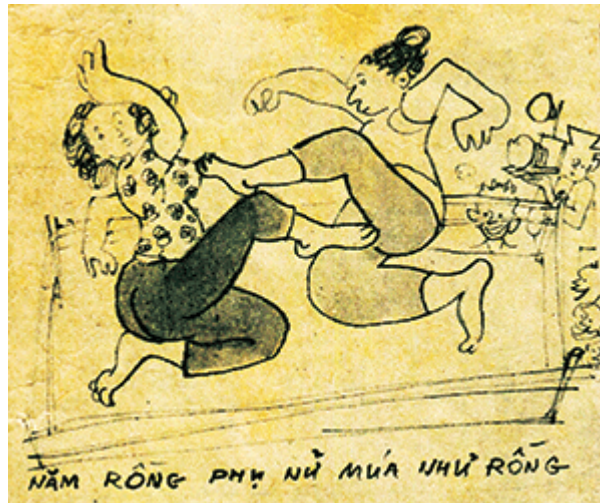 NĂM RỒNG PHỤ NỮ MÚA NHƯ RỒNG